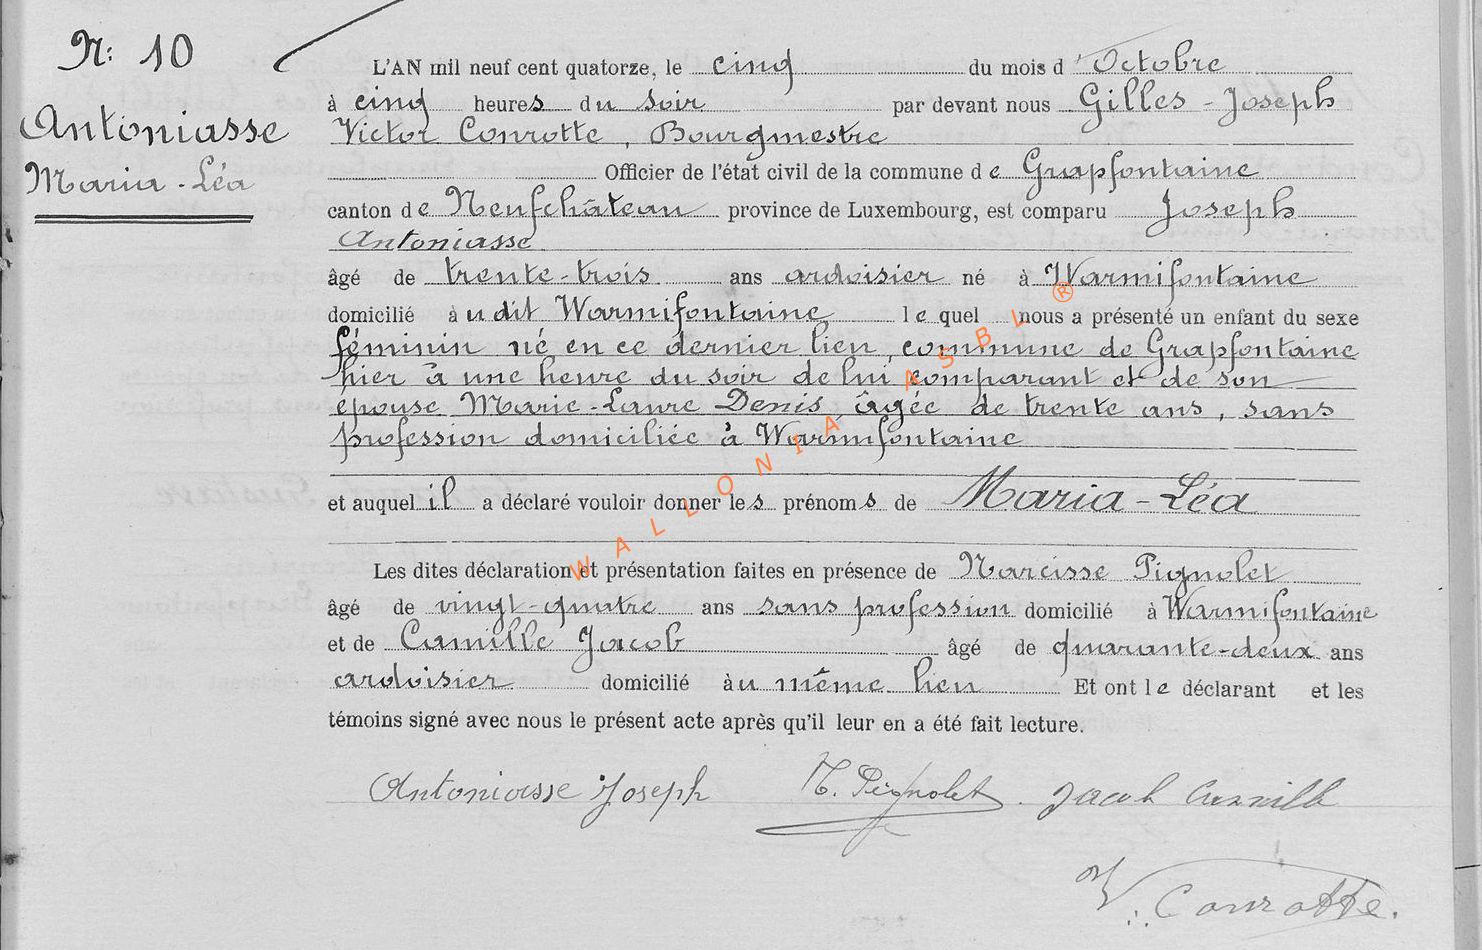 N: 10
Antoniasse
Maria-Léa
L'AN mil neuf cent quatorze, le cinq du mois d'Octobre
à cinq heures du soir par devant nous Gilles-Joseph
Victor Conrotte, Bourgmestre
Officier de l'état civil de la commune de Grapfontaine
canton de Neufchâteau province de Luxembourg, est comparu Joseph
Antoniasse
âgé de trente-trois ans ardoisier né à Warmifontaine
domicilié audit Warmifontaine lequel nous a présenté un enfant du sexe
féminin né en ce dernier lieu, commune de Grapfontaine
hier à une heure du soir de lui comparant et de son
épouse Marie-Laure Denis, âgée de trente ans, sans
profession domiciliée à Warmifontaine
et auquel il a déclaré vouloir donner les prénoms de Maria-Léa
Les dites déclaration et présentation faites en présence de Narcisse Pignolet
âgé de vingt-quatre ans sans profession domicilié à Warmifontaine
et de Camille Jacob âgé de quarante-deux ans
ardoisier domicilié au même lieu Et ont le déclarant et les
témoins signé avec nous le présent acte après qu'il leur en a été fait lecture.
Antoniasse Joseph N. Pignolet Jacob Camille
V. Conrotte.
WALLONIA ASBL ®